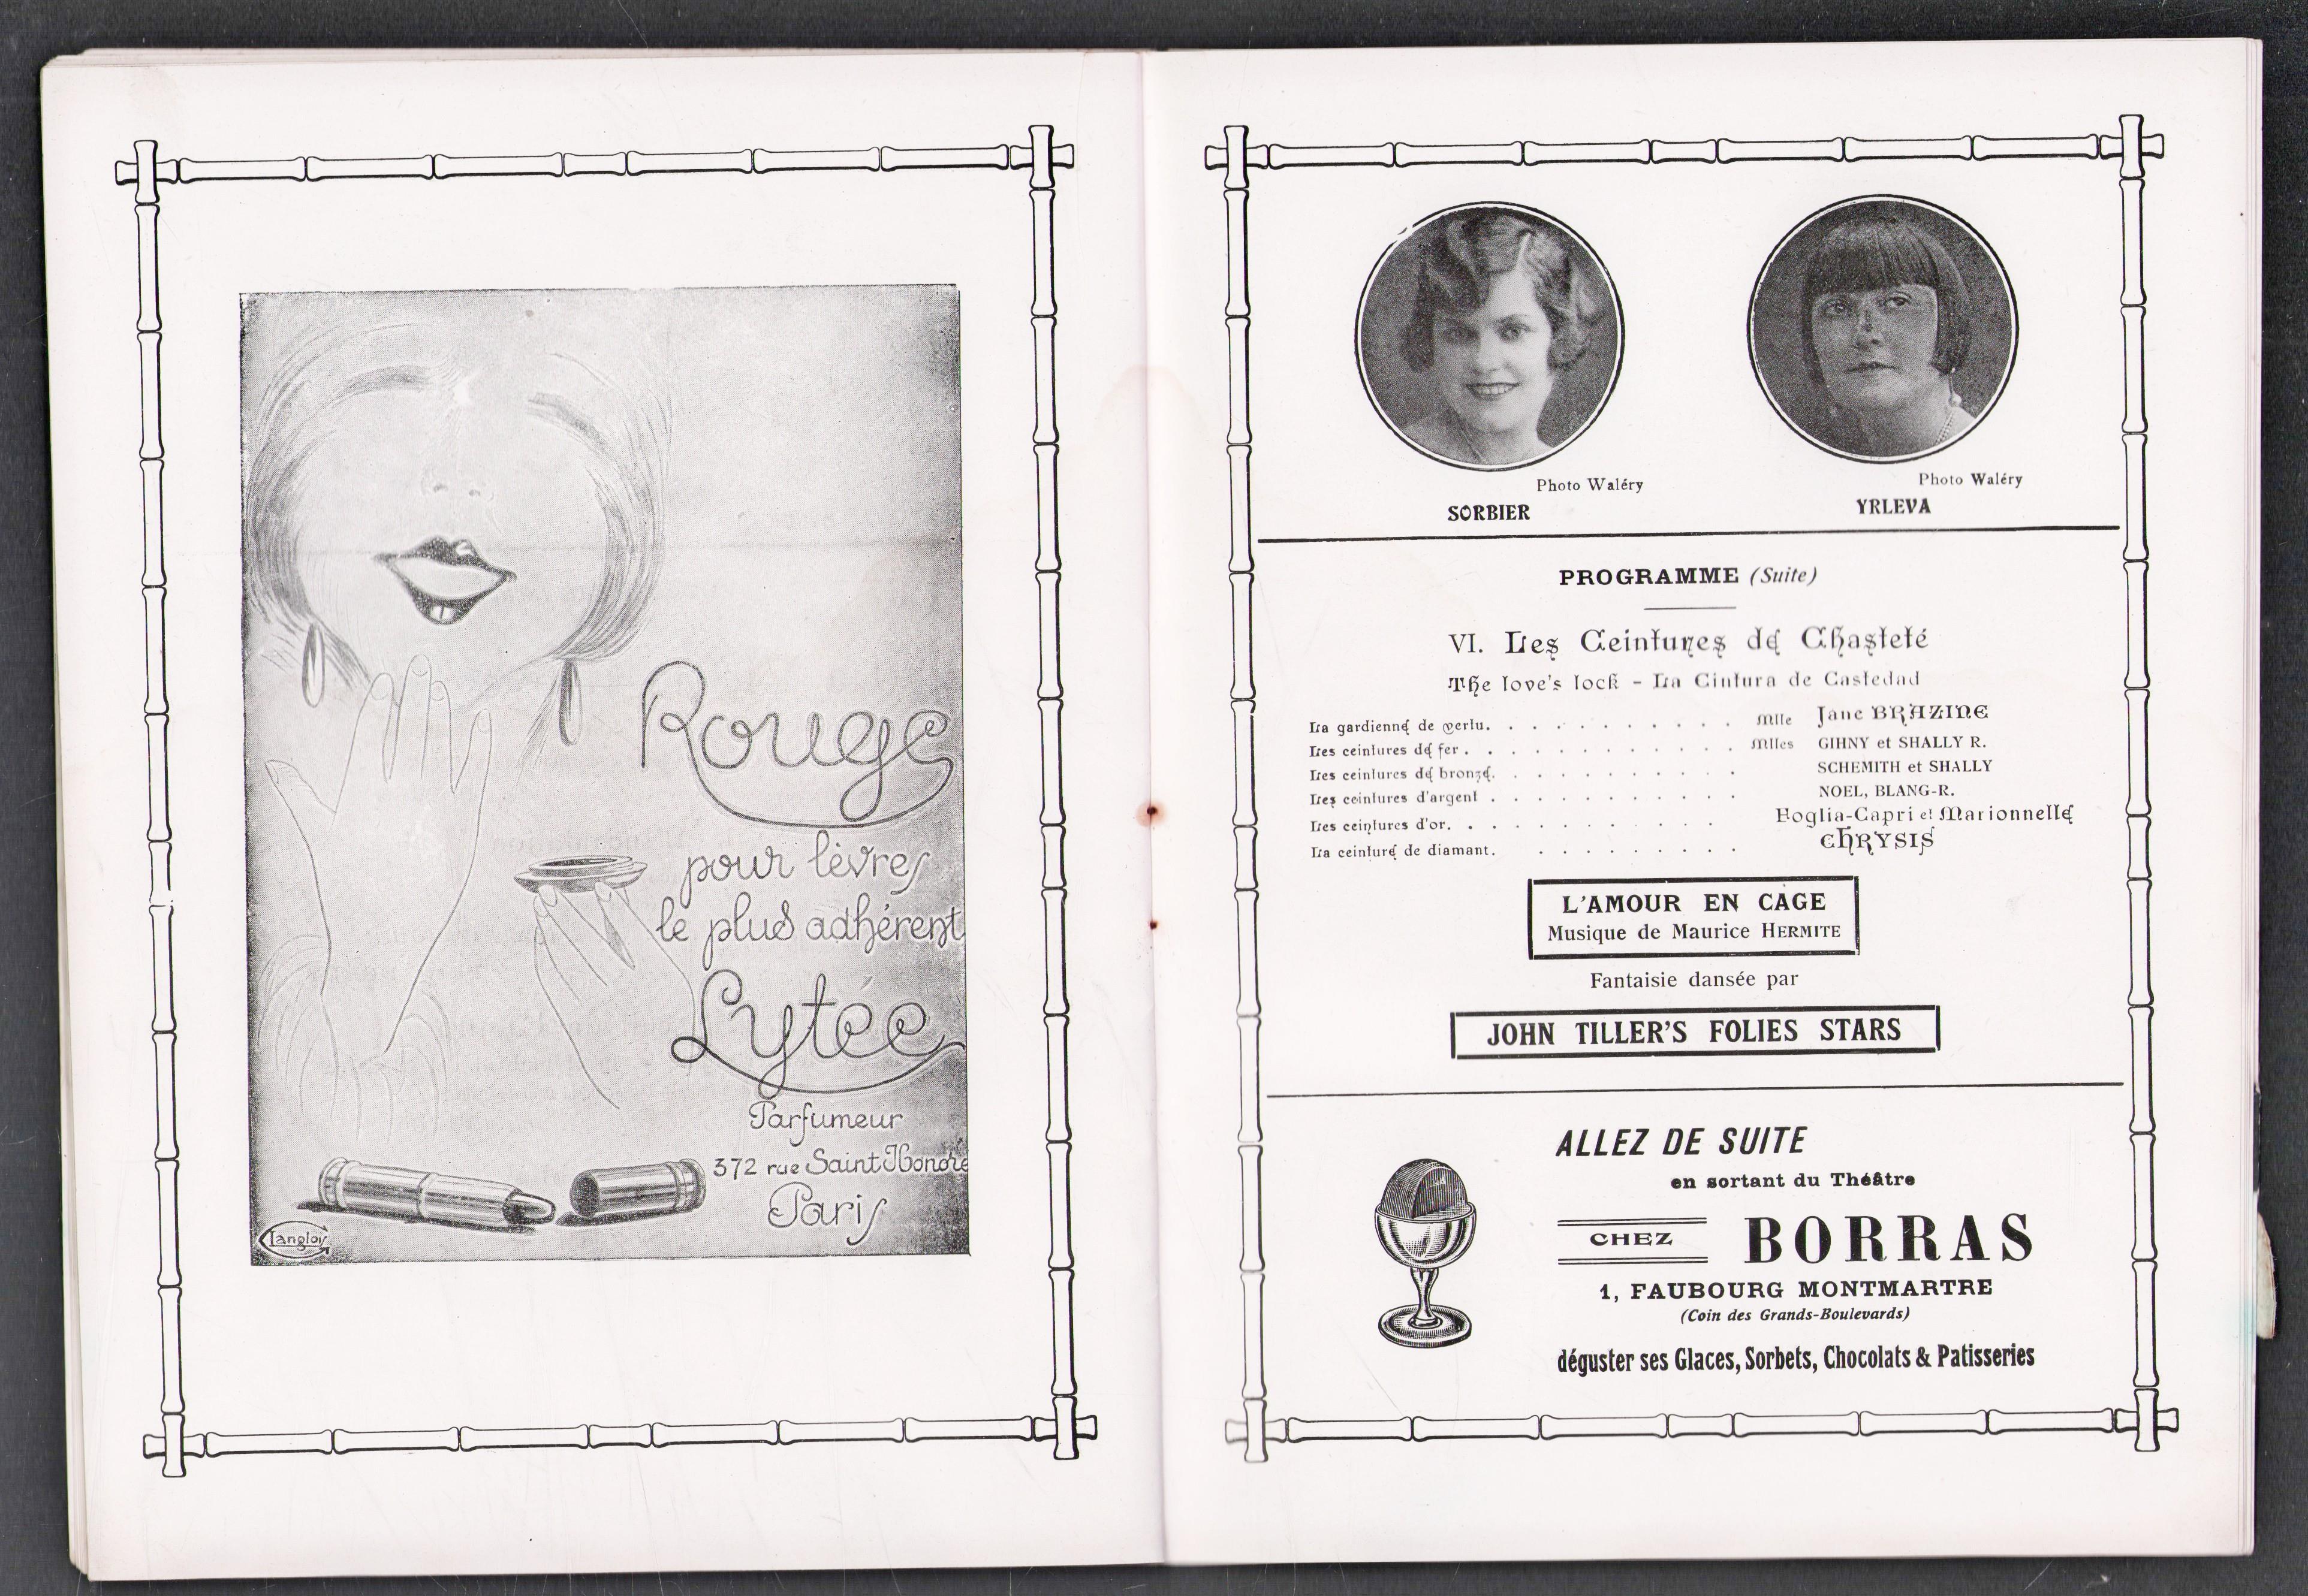 Rouge
pour lèvres
le plus adhérent
Lytée
Parfumeur
372 rue Saint Honoré
Paris
Langlois
Photo Waléry
SORBIER
Photo Waléry
YRLEVA
PROGRAMME (Suite)
VI. Les Ceintures de Chasteté
The love's lock - La Cintura de Castedad
La gardienne de vertu. . . . . . . . . . . . Mlle Jane BRAZINE
Les ceintures de fer . . . . . . . . . . . . Mlles GIHNY et SHALLY R.
Les ceintures de bronze. . . . . . . . . . . SCHEMITH et SHALLY
Les ceintures d'argent . . . . . . . . . . . NOEL, BLANG-R.
Les ceintures d'or. . . . . . . . . . . . Foglia-Capri et Marionnelle
La ceinture de diamant. . . . . . . . . . CHRYSIS
L'AMOUR EN CAGE
Musique de Maurice HERMITE
Fantaisie dansée par
JOHN TILLER'S FOLIES STARS
ALLEZ DE SUITE
en sortant du Théâtre
CHEZ BORRAS
1, FAUBOURG MONTMARTRE
(Coin des Grands-Boulevards)
déguster ses Glaces, Sorbets, Chocolats & Patisseries